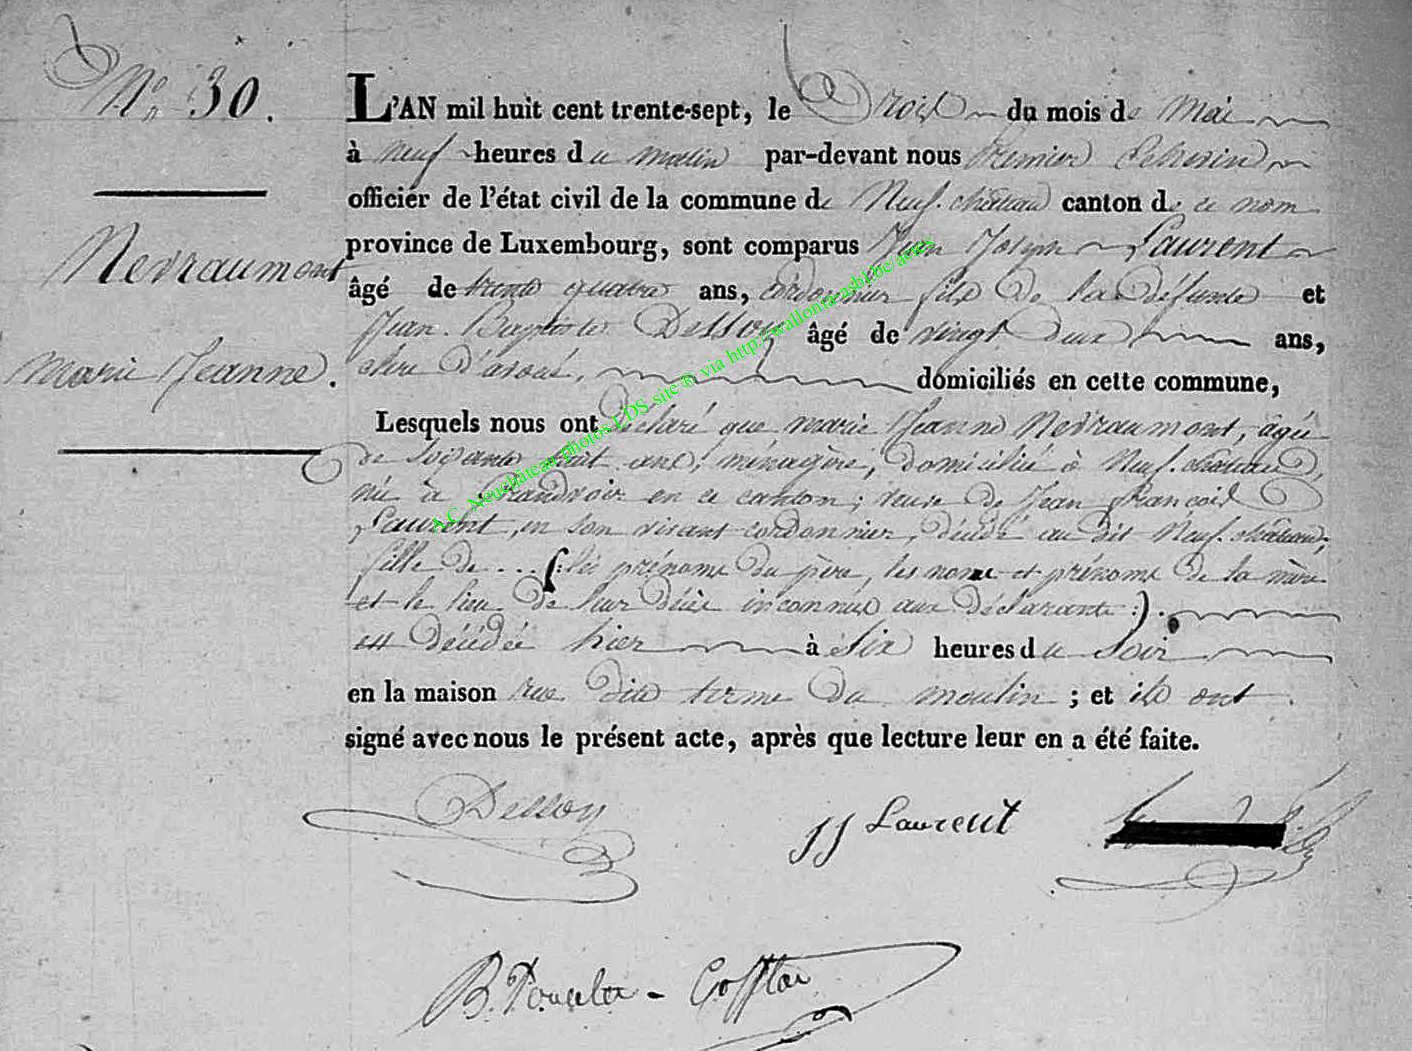 No 30.
L'AN mil huit cent trente-sept, le trois du mois de Mai
à neuf heures du matin par-devant nous premier Echevin
officier de l'état civil de la commune de Neuf-château canton de ce nom
province de Luxembourg, sont comparus Jean Joseph Laurent
Nevraumont
âgé de trente quatre ans, cordonnier fils de la défunte et
Jean-Baptiste Dessoy âgé de vingt deux ans,
Marie Jeanne.
clerc d'avoué, domiciliés en cette commune,
Lesquels nous ont déclaré que marie Jeanne Nevraumont, agée
de soixante huit ans, ménagère, domiciliée à Neuf-château,
née à Grandvoir en ce canton; veuve de Jean françois
Laurent, en son vivant cordonnier, décédé au dit Neuf-château,
fille de ... (:les prénoms du père, les noms et prénoms de la mère
et le lieu de leur décès inconnus aux déclarants:).
est décédée hier à six heures du soir
en la maison rue dite terme du moulin ; et ils ont
signé avec nous le présent acte, après que lecture leur en a été faite.
Dessoy
JJ Laurent
B. Poncelet-Gofflot
A.C. Neufchâteau photos LDS site © via http://wallonia-asbl.be/actes